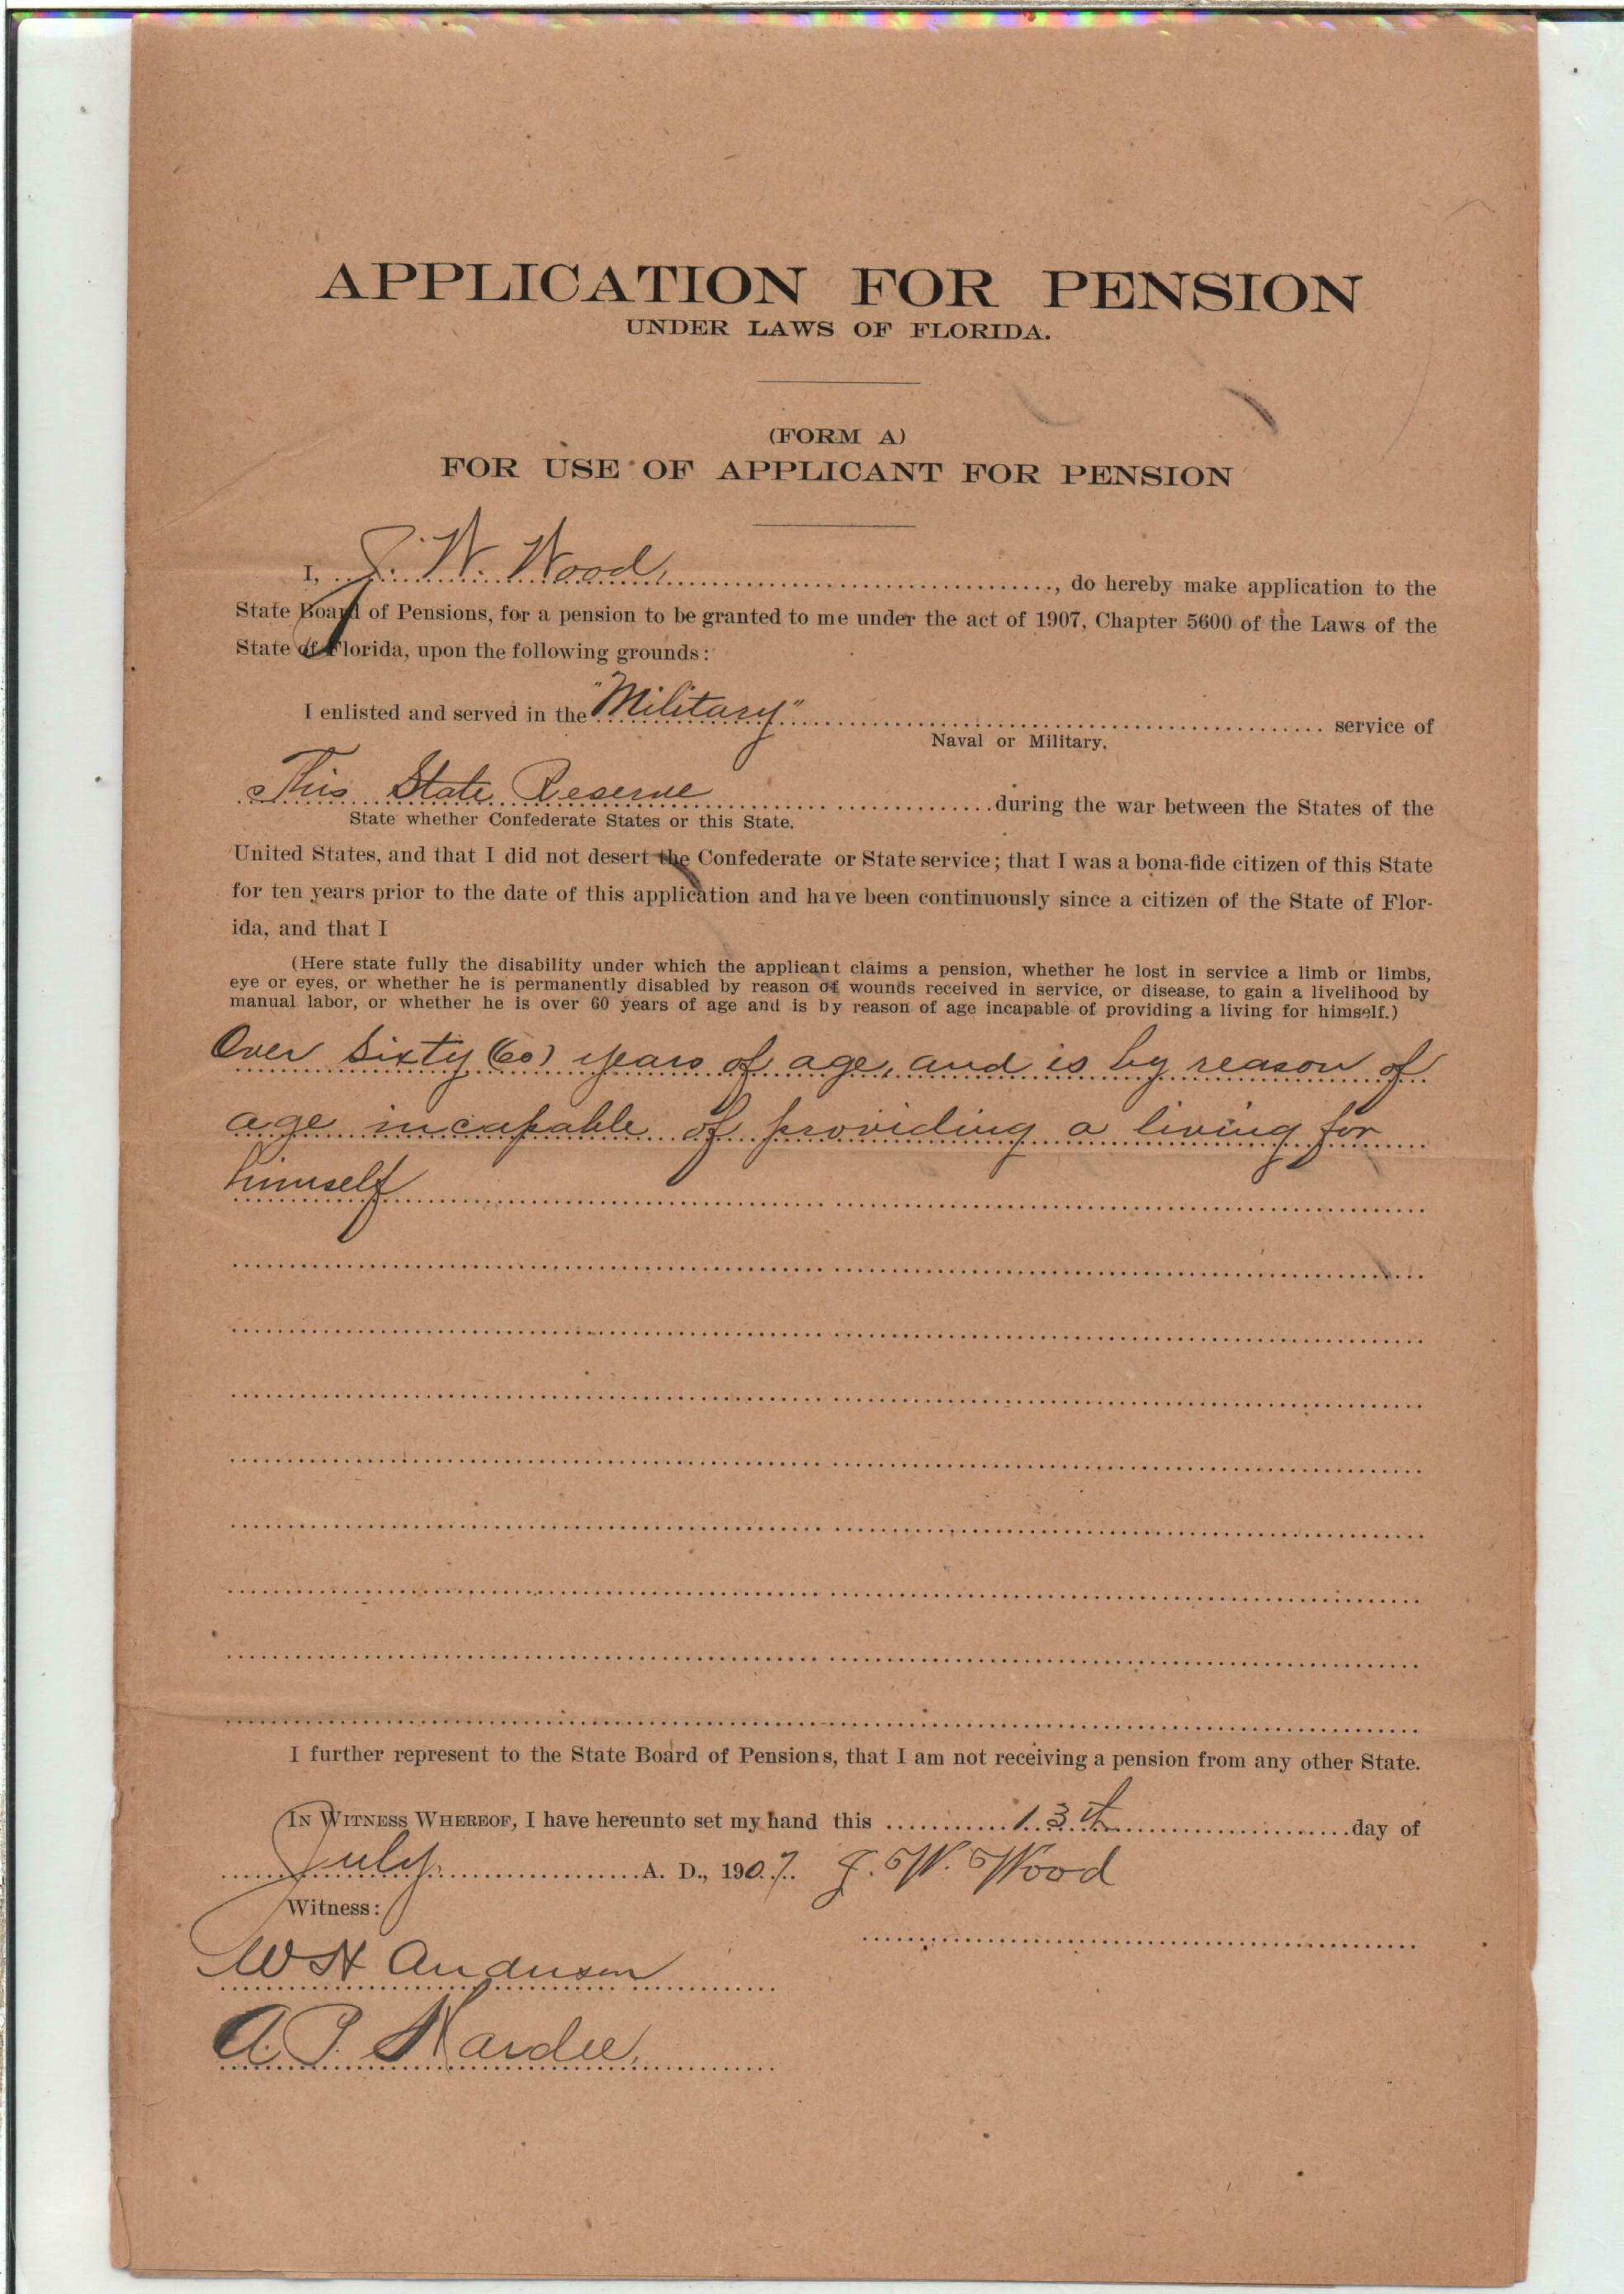 APPLICATION FOR PENSION
UNDER LAWS OF FLORIDA.
(FORM A)
FOR USE OF APPLICANT FOR PENSION
I, J. W. Wood, do hereby make application to the
State Board of Pensions, for a pension to be granted to me under the act of 1907, Chapter 5600 of the Laws of the
State of Florida, upon the following grounds:
I enlisted and served in the "Military" service of
Naval or Military.
This State Reserve during the war between the States of the
State whether Confederate States or this State.
United States, and that I did not desert the Confederate or State service; that I was a bona-fide citizen of this State
for ten years prior to the date of this application and have been continuously since a citizen of the State of Flor-
ida, and that I
(Here state fully the disability under which the applicant claims a pension, whether he lost in service a limb or limbs,
eye or eyes, or whether he is permanently disabled by reason of wounds received in service, or disease, to gain a livelihood by
manual labor, or whether he is over 60 years of age and is by reason of age incapable of providing a living for himself.)
Over Sixty (60) years of age, and is by reason of
age incapable of providing a living for
himself
I further represent to the State Board of Pensions, that I am not receiving a pension from any other State.
IN WITNESS WHEREOF, I have hereunto set my hand this 13th day of
July A. D., 1907. J. W. Wood
Witness:
W H Anderson
A. J. Hardee.